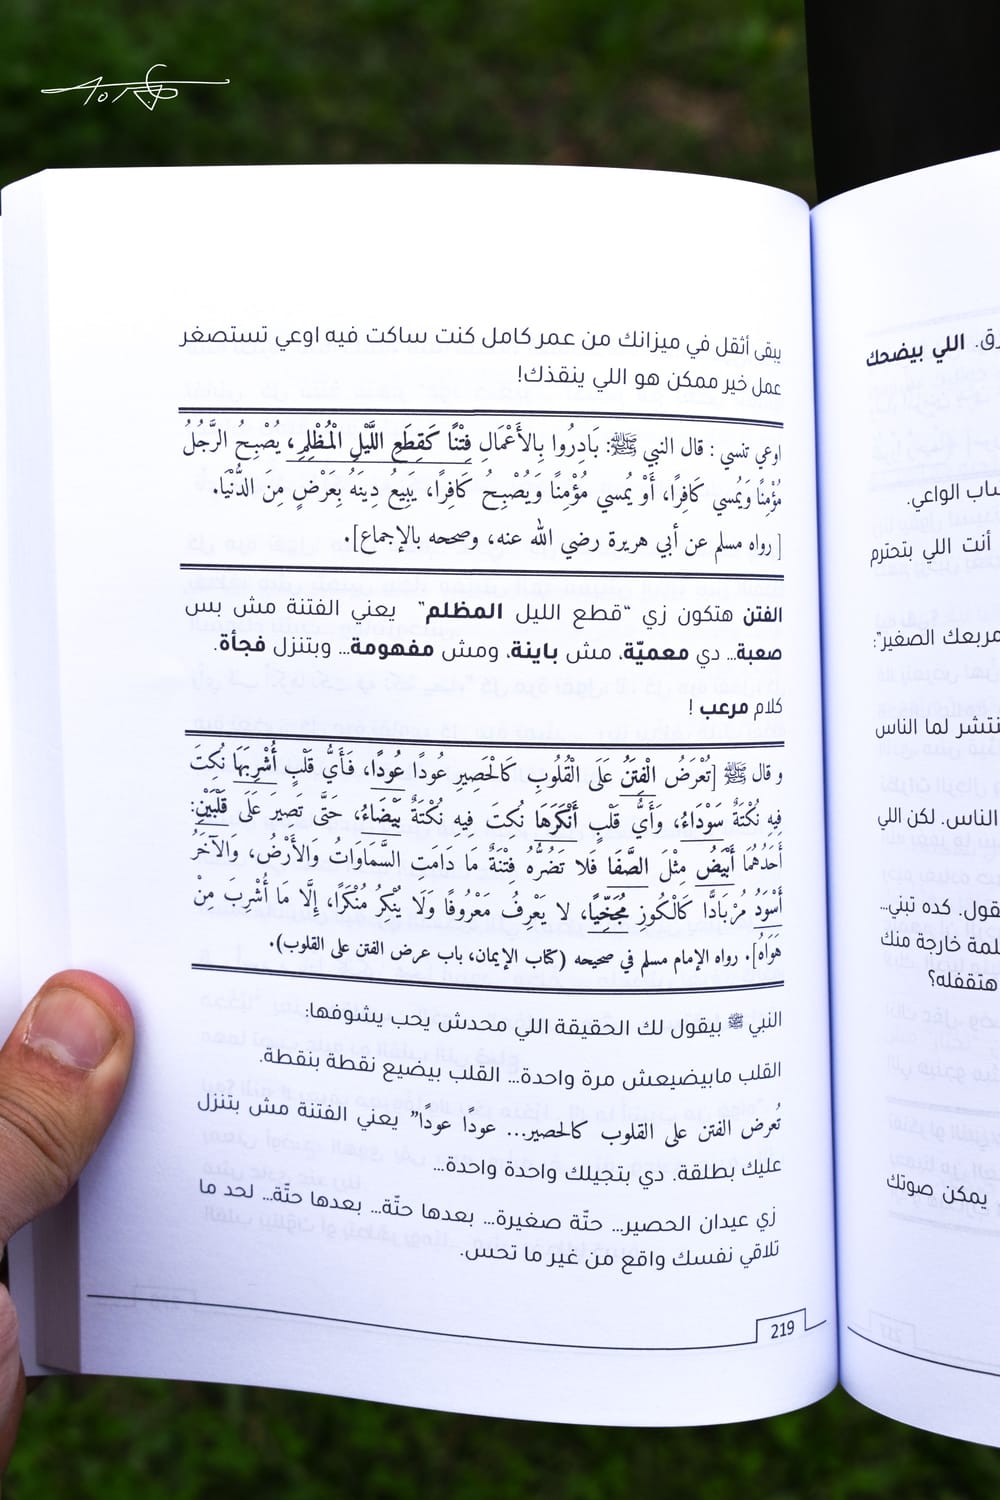 يبقى أثقل في ميزانك من عمر كامل كنت ساكت فيه اوعي تستصغر
عمل خير ممكن هو اللي ينقذك!
اوعي تنسي : قال النبي ﷺ: بَادِرُوا بِالأَعْمَالِ فِتْنًا كَقِطَعِ اللَّيْلِ الْمُظْلِمِ، يُصْبِحُ الرَّجُلُ
مُؤْمِنًا وَيُمسي كَافِرًا، أَوْ يُمسي مُؤْمِنًا وَيُصْبِحُ كَافِرًا، يَبِيعُ دِينَهُ بِعَرَضٍ مِنَ الدُّنْيَا.
[ رواه مسلم عن أبي هريرة رضي الله عنه، وصححه بالإجماع].
الفتن هتكون زي "قطع الليل المظلم" يعني الفتنة مش بس
صعبة... دي معميّة، مش باينة، ومش مفهومة... وبتنزل فجأة.
كلام مرعب !
و قال ﷺ [تُعْرَضُ الْفِتَنُ عَلَى الْقُلُوبِ كَالْحَصِيرِ عُودًا عُودًا، فَأَيُّ قَلْبٍ أُشْرِبَهَا نُكِتَ
فِيهِ نُكْتَةٌ سَوْدَاءُ، وَأَيُّ قَلْبٍ أَنْكَرَهَا نُكِتَ فِيهِ نُكْتَةٌ بَيْضَاءُ، حَتَّى تَصِيرَ عَلَى قَلْبَيْنِ:
أَحَدُهُمَا أَبْيَضُ مِثْلَ الصَّفَا فَلا تَضُرُّهُ فِتْنَةٌ مَا دَامَتِ السَّمَاوَاتُ وَالأَرْضُ، وَالآخَرُ
أَسْوَدُ مُرْبَادًّا كَالْكُوزِ مُجَخِّيًا، لا يَعْرِفُ مَعْرُوفًا وَلَا يُنْكِرُ مُنْكَرًا، إِلَّا مَا أُشْرِبَ مِنْ
هَوَاهُ]. رواه الإمام مسلم في صحيحه (كتاب الإيمان، باب عرض الفتن على القلوب).
النبي ﷺ بيقول لك الحقيقة اللي محدش يحب يشوفها:
القلب مابيضيعش مرة واحدة... القلب بيضيع نقطة بنقطة.
تُعرض الفتن على القلوب كالحصير... عودًا عودًا" يعني الفتنة مش بتنزل
عليك بطلقة. دي بتجيلك واحدة واحدة...
زي عيدان الحصير... حتّة صغيرة... بعدها حتّة... بعدها حتّة... لحد ما
تلاقي نفسك واقع من غير ما تحس.
219
اللي بيضحك
ساب الواعي.
أنت اللي بتحترم
مربعك الصغير":
نتشر لما الناس
الناس. لكن اللي
قول. كده تبني...
لمة خارجة منك
هتقفله؟
يمكن صوتك